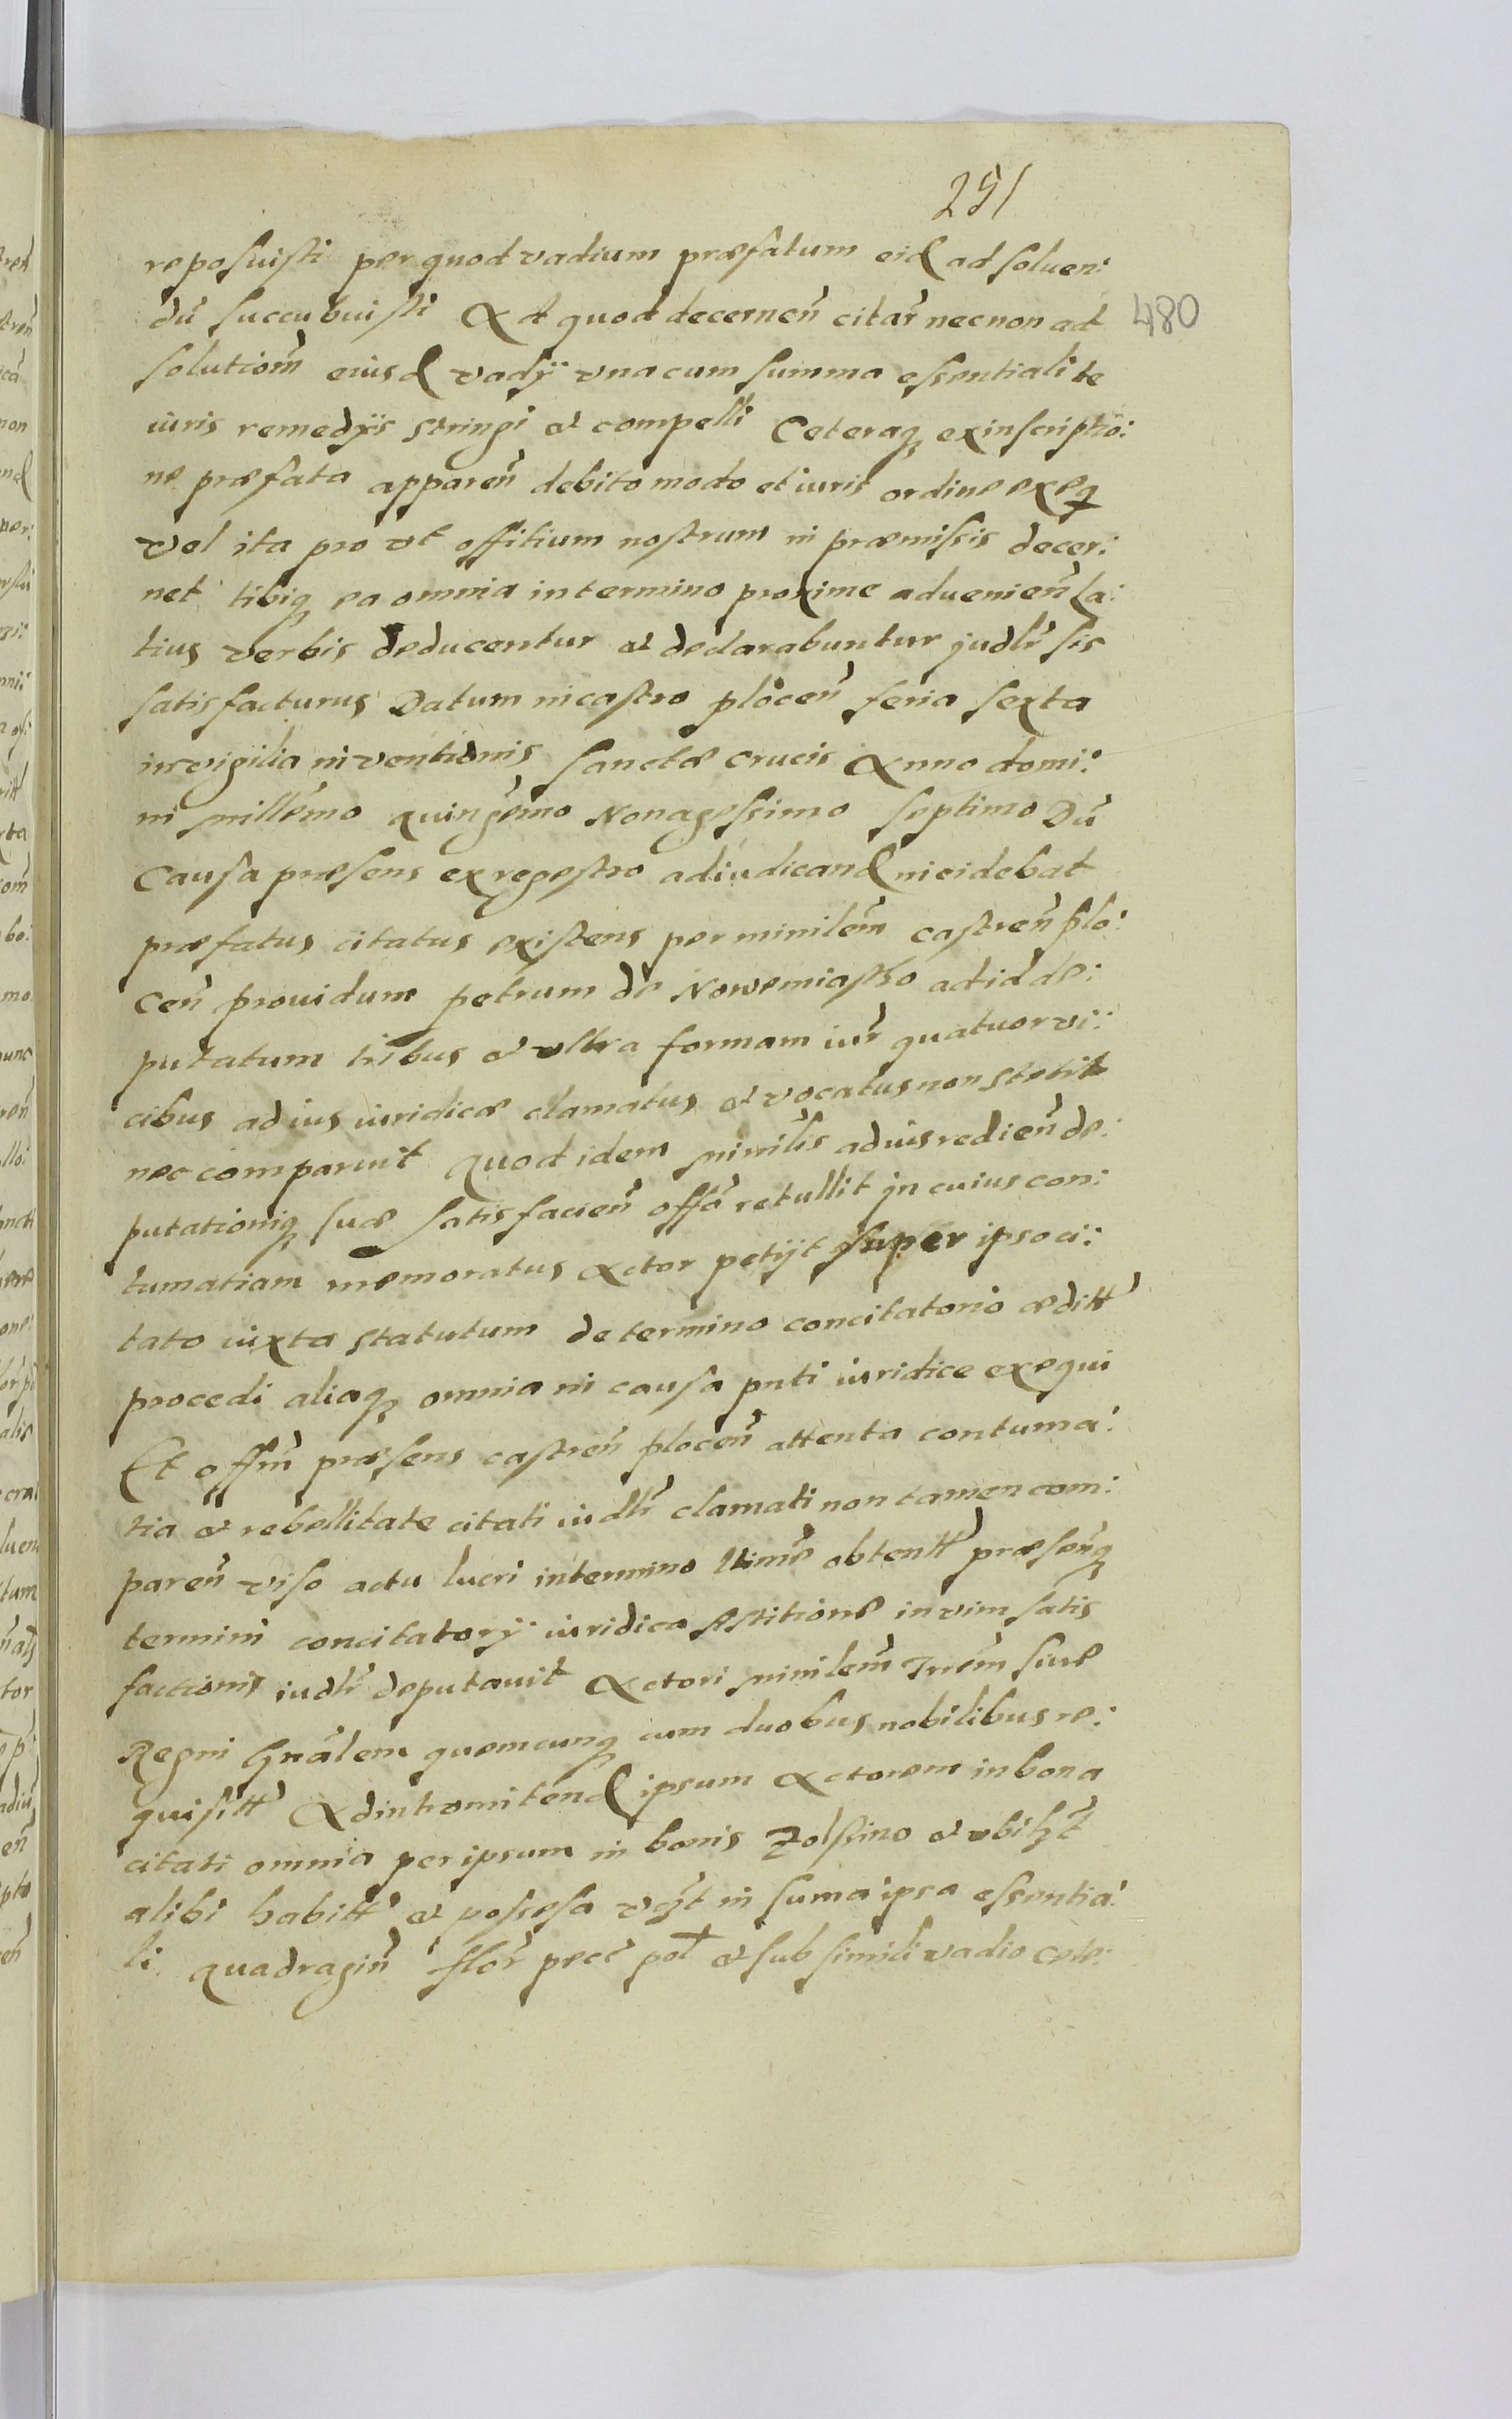 251
reposuisti per quod vadium præfatum eid ad soluen:
dū succubuisti Ad quod decernen̄ citar̄ necnon ad 480
solutiom̄ eiusd vadÿ vna cum summa essentiali te
iuris remedÿs stringi et compelli Ceteraq₃ ex inscriptio:
ne præfata apparen̄ debito modo et iuris ordine exeq
vel ita pro vt offitium nostrum in præmissis decer:
net tibiq₃ ea omnia in termino proxime aduenien̄ la:
tius verbis deducentur et declarabuntur judlr̄ sis
satisfacturus Datum in castro plocen̄ feria sexta
in vigilia inventionis sanctæ crucis Anno domi:
ni millēmo quingēmo Nonagessimo septimo Dū
causa præsens ex regestro adiudicand incidebat
præfatus citatus existens per minilem̄ castren̄ plo:
cen̄ prouidum petrum de Nowemiasto ad id de:
putatum tribus et vltra formam iur̄ quatuor vi:
cibus ad ius iuridicæ clamatus et vocatus non stetit
nec comparuit quod idem minīlis ad ius redien̄ de:
putationiq₃ suæ satisfacien̄ offō retullit jn cuius con:
tumatiam memoratus Actor petijt super ipso ci:
tato iuxta statutum de termino concitatorio æditt
procedi aliaq₃ omnia in causa pnti iuridice exequi
Et offm̄ præsens castren̄ plocen̄ attenta contuma:
tia et rebellitate citati iudlr̄ clamati non tamen com:
paren̄ viso actu lucri in termino ltimē obtentt præsenq₃
termini concitatorÿ iuridica Astitione in vim satis
factionis iudlr̄ deputauit Actori minilem̄ Trem̄ siue
Regni Gnālem quemcunq₃ cum duobus nobilibus re:
quisitt Ad intromitend ipsum Actorem in bona
citati omnia per ipsum in bonis Zolstino et vbilȝt
alibi habitt et possesa vȝt in suma ipsa essentia:
li quadragin̄ flor̄ pecc pol et sub simili vadio cete: